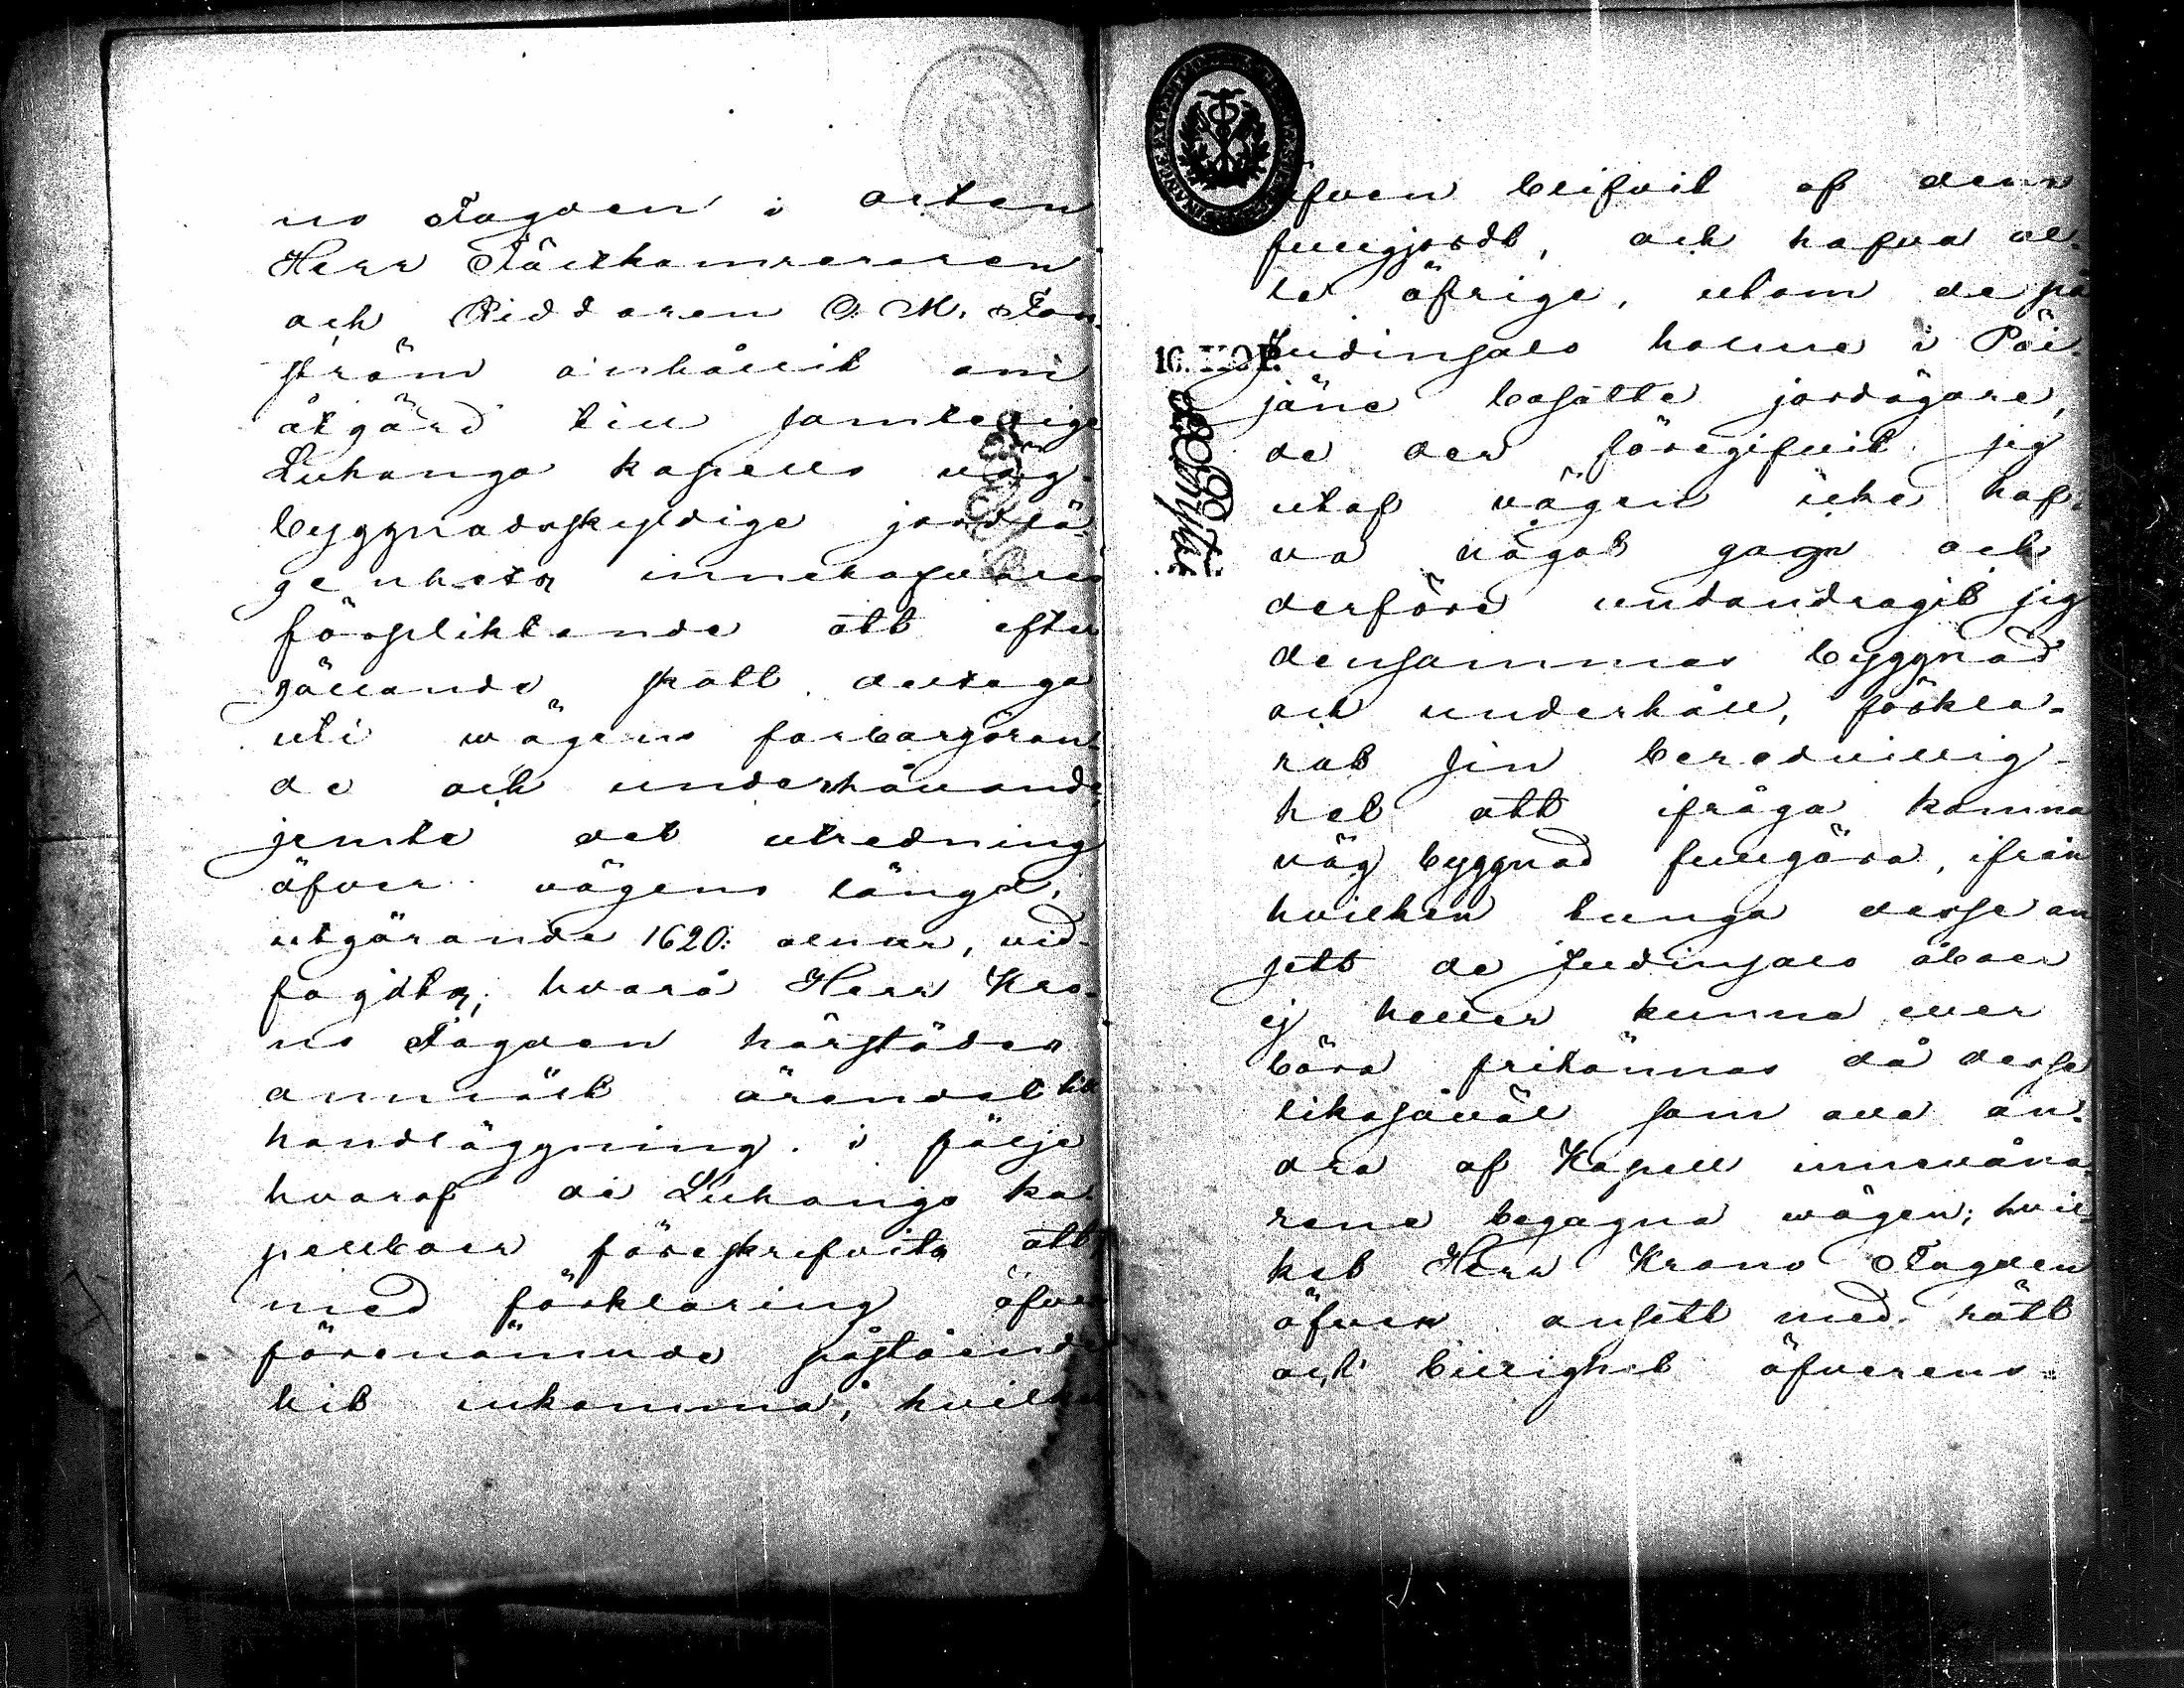 ns Fogden i orten
Herr Fältkamreraren
och Riddaren O. M. Fon-
ström anhållit om
åtgärd till samtelige
Luhanga kapells väg-
byggnadsskyldige jordlä-
genheters innehafvares
förpliktande att efter
gällande skatt deltaga
uti wägens farbargöran-
de och underhållande,
jemte det utredning
öfver vägens längd,
utgörande 1620: alnar, vid-
fogats; hvarå Herr Kro-
no Fogden härstädes
anmält ärendet till
handläggning. i följe
hvaraf de Luhango ka-
pellboer föreskrefvits att
med förklaring öfver
förenämnde påstående
hit inkomma; hvilket
äfven blifvit af dem
fullgjordt, och hafva al-
le öfrige, utom de på
Judinsalo holme i Päi-
jäne bosatte jordägare,
de der föregifvit sig
utaf vägen icke haf-
va något gagn och
derföre undandragit sig
densammas byggnad
och underhåll, förkla-
rat sin beredvillig-
het att ifråga komna
väg byggnad fullgöra, ifrån
hvilken tunga desse an
sett de Judinsalo åboer
ej heller kunna eller
böra fritännas då desse
likasåväl som alla an-
dra af Kapell innevåna-
rene begagna wägen; hvil-
ket Herr Krono Fogden
äfven ansett med rätt
och billighet öfverens-
16. KOP.